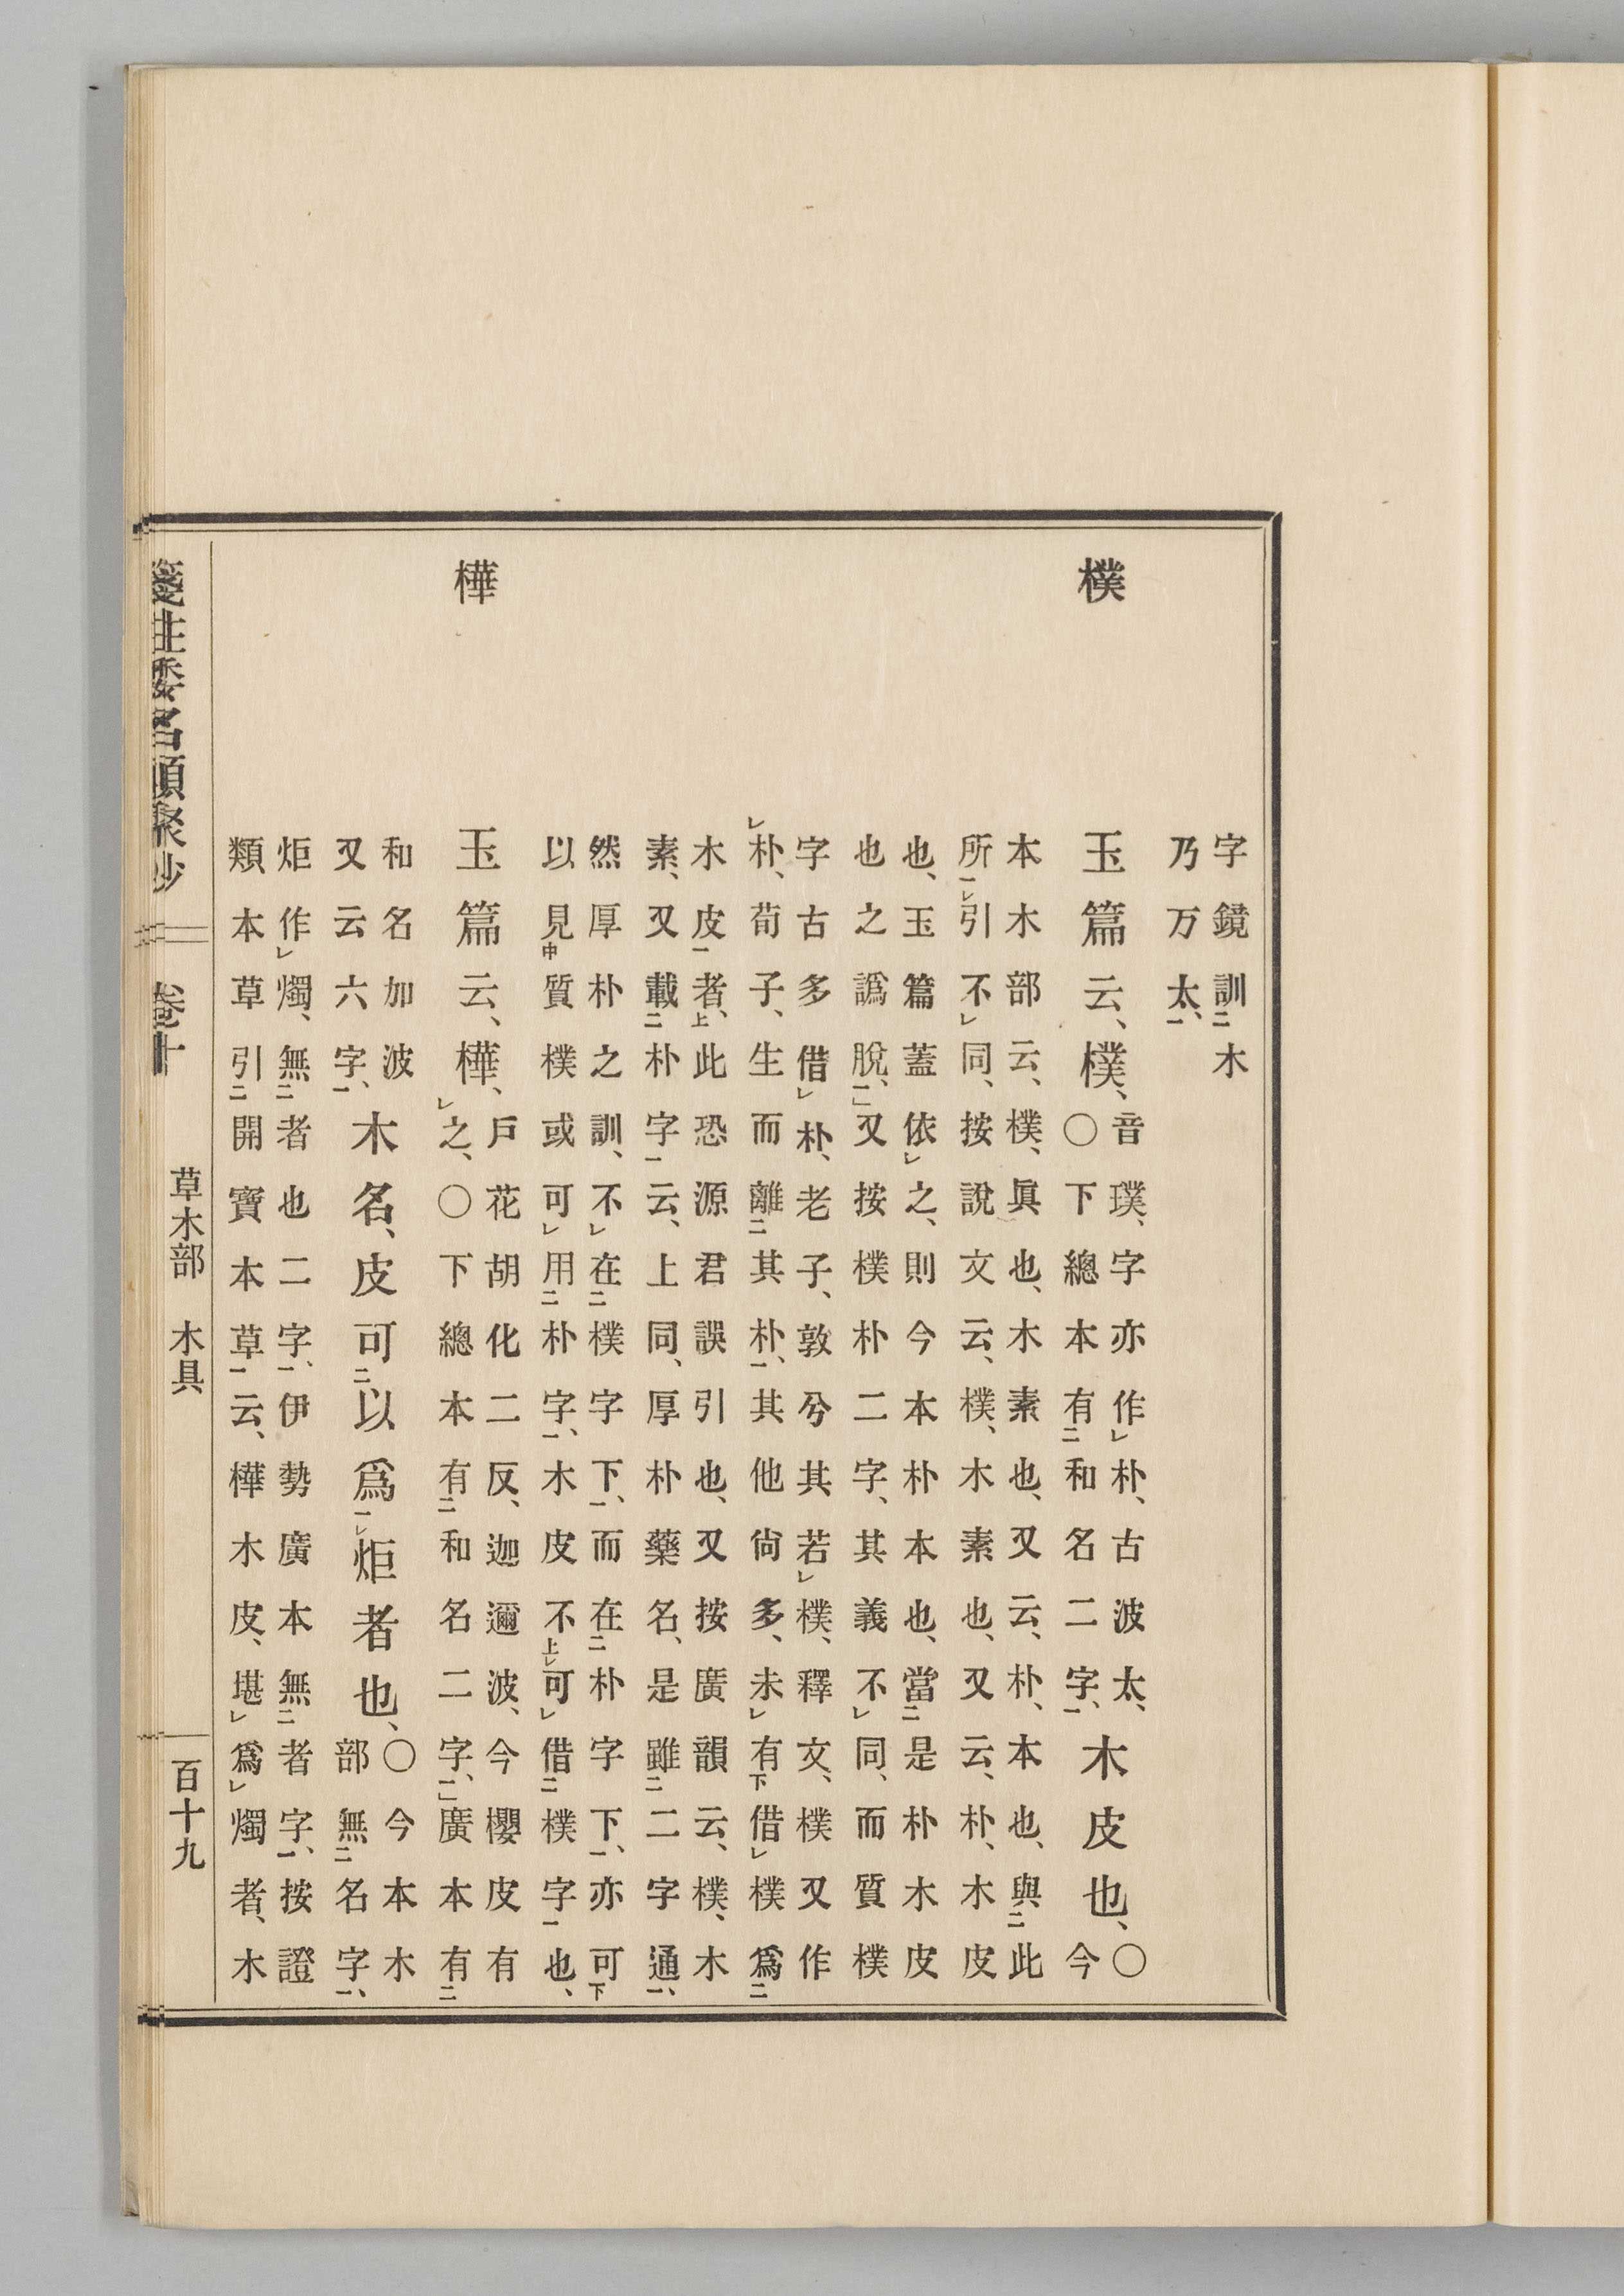 字鏡訓㆓木
乃万太、㆒
樸
玉篇云、樸、
音璞、字亦作㆑朴、古波太、
〇下總本有㆓和名二字、㆒
木皮也、
〇
今
本木部云、樸、眞也、木素也、又云、朴、本也、與㆓此
所㆒㆑引不㆑同、按說文云、樸、木素也、又云、朴、木皮
也、玉篇蓋依㆑之、則今本朴本也、當㆓是朴木皮
也之譌脫、㆒」又按樸朴二字、其義不㆑同、而質樸
字古多借㆑朴、老子、敦兮其若㆑樸、釋文、樸又作
㆑朴、荀子、生而離㆓其朴、㆒其他尙多、未㆑有㆘借㆑樸爲㆓
木皮㆒者、㆖此恐源君誤引也、又按廣韻云、樸、木
素、又載㆓朴字㆒云、上同、厚朴藥名、是雖㆓二字通、㆒
然厚朴之訓、不㆑在㆓樸字下、㆒而在㆓朴字下、㆒亦可㆘
以見㆗質樸或可㆑用㆓朴字、㆒木皮不㆖㆑可㆑借㆓樸字㆒也、
樺
玉篇云、樺、
戶花胡化二反、迦邇波、今櫻皮有
㆑之、〇下總本有㆓和名二字、㆒」廣本有㆓
和名加波
又云六字、㆒
木名、皮可㆓以爲㆒㆑炬者也、
〇今本木
部無㆓名字、㆒
炬作㆑燭、無㆓者也二字、㆒伊勢廣本無㆓者字、㆒按證
類本草引㆓開寶本草㆒云、樺木皮、堪㆑爲㆑燭者、木
箋注倭名類聚抄　卷十　草木部　木具　百十九